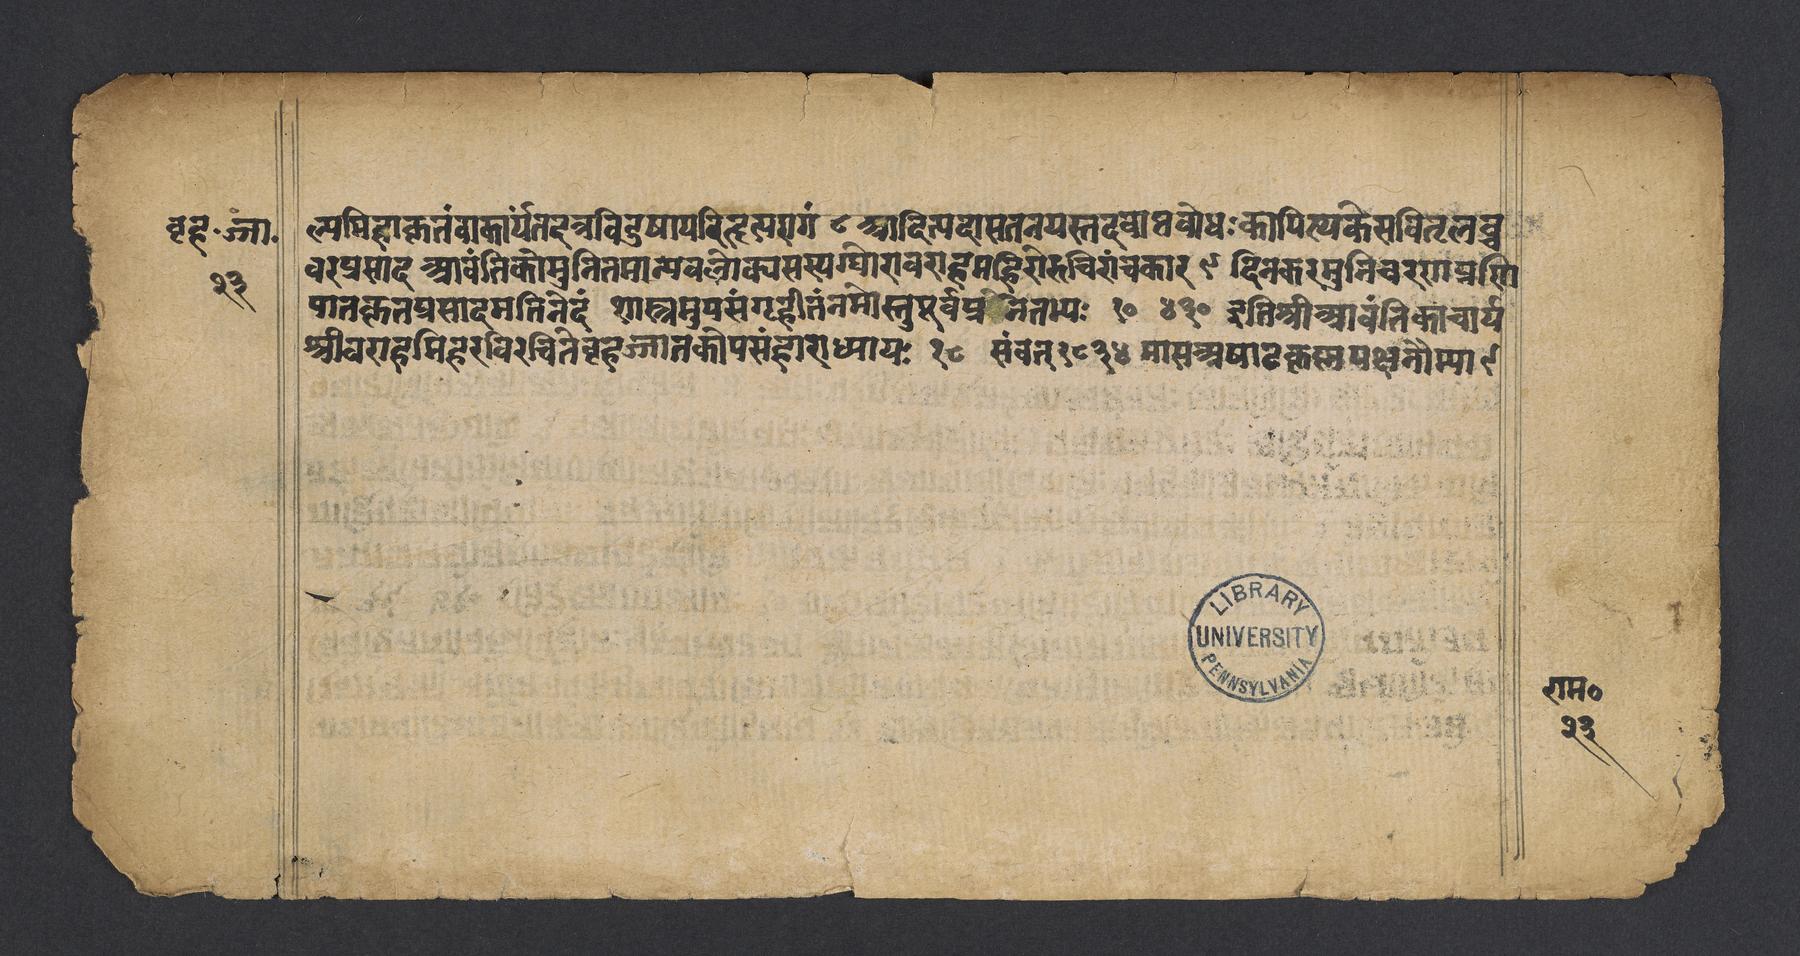 बृह.ज्जा.
२३
ल्पमिहाकृतंवाकार्यंतदत्रविदुषापरिहृत्यरागं ८ आदित्यदासतनयस्तदवाप्तबोधः कापित्थकेसवितृलब्ध
वरप्रसाद आवंतिकोमुनिमतमान्यवलोक्यसम्यग्घोरावराहमिहिरोरुचिरांचकार ९ दिनकरमुनिचरणप्रणि
पातकृतप्रसादमतिनेदं शास्त्रमुपसंगृहीतंनमोस्तुपूर्वप्र नेतृभ्यः १० ४३० इतिश्रीआवंतिकाचार्य
श्रीवराहमिहरविरचितेबृहज्जातकोपसंहाराध्यायः १८ संवत् १८३४ मासअषाढकृस्नपक्षनौम्या ९
LIBRARY
UNIVERSITY
PENNSYLVANIA
राम०
२३